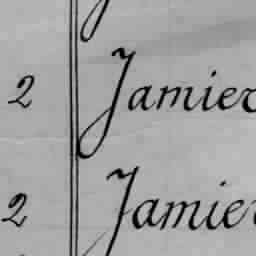 2 Jamier
2 Jamier